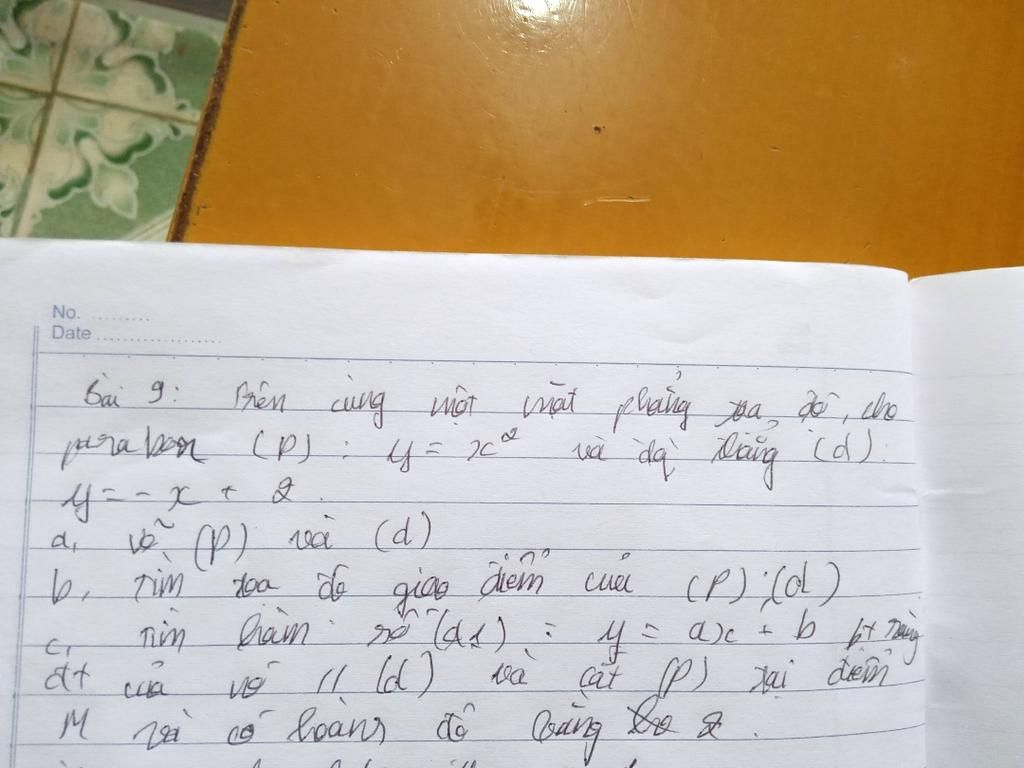 No. ..........
Date ......................
Bài 9: Trên cùng một mặt phẳng tọa độ, cho
parabol (P): y = x² và đg thẳng (d):
y = - x + 2.
a, vẽ (P) và (d)
b, Tìm tọa độ giao điểm của (P); (d)
c, Tìm hàm số (d1) : y = ax + b bt rằng
đt của nó // (d) và cắt (P) tại điểm
M và có hoành độ bằng 2.